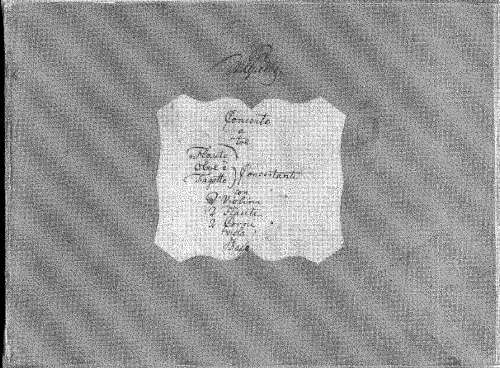 Concerto
a
tre
Flauto
Oboe e
Fagotto
Concertanti
con
2 Violini
2 Flauti
2 Corni
Viola
Basso